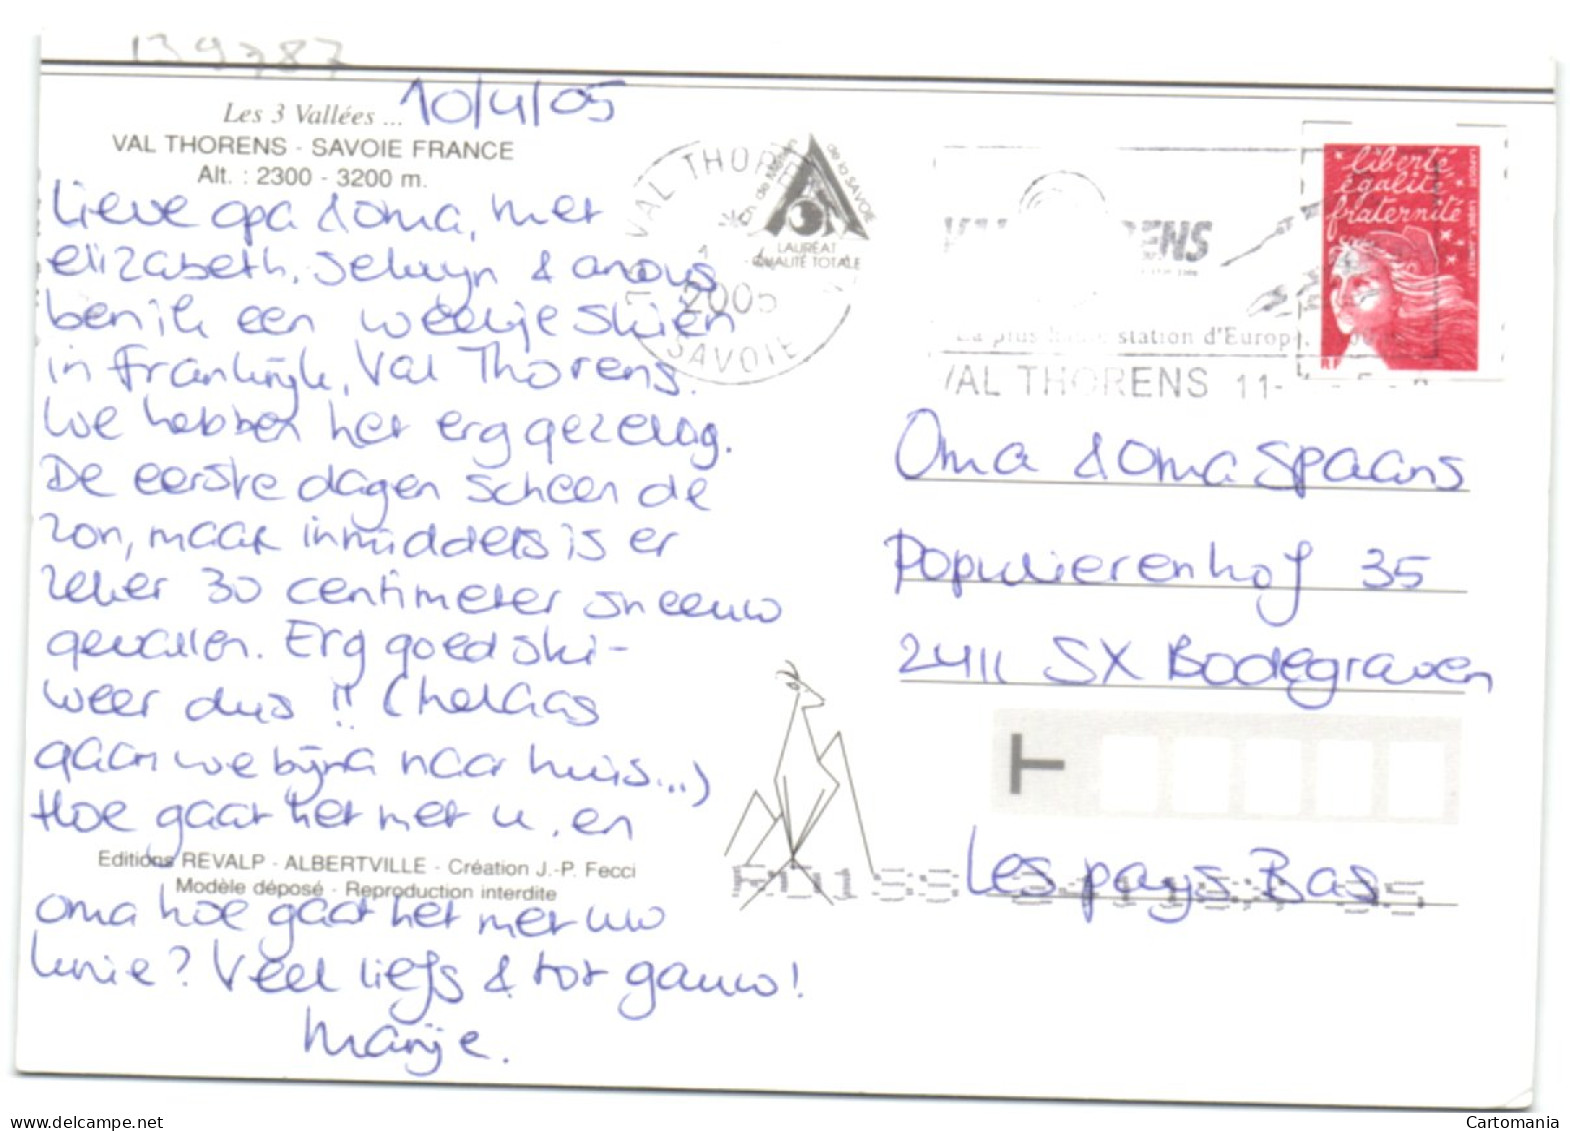 139787
Les 3 Vallées ... 10/4/05
VAL THORENS - SAVOIE FRANCE
Alt. : 2300 - 3200 m.
Lieve opa & oma, met
elizabeth, Selwyn & anous
ben ik een weekje skiën
in Frankrijk, Val Thorens.
We hebben het erg gezellig.
De eerste dagen scheen de
zon, maar inmiddels is er
zeker 30 centimeter sneeuw
gevallen. Erg goed ski-
weer dus !! (helaas
gaan we bijna naar huis...)
Hoe gaat het met u, en
Editions REVALP - ALBERTVILLE - Création J.-P. Fecci
Modèle déposé - Reproduction interdite
oma hoe gaat het met uw
knie? Veel liefs & tot gauw!
Marije.
VAL THORENS
2005
SAVOIE
de la SAVOIE
LAURÉAT
QUALITÉ TOTALE
station d'Europe
VAL THORENS 11-
liberté,
égalité,
fraternité
LA POSTE
RF
Oma & oma Spaans
Populierenhof 35
2411 SX Bodegraven
T
Les pays Bas
delcampe.net
Cartomania